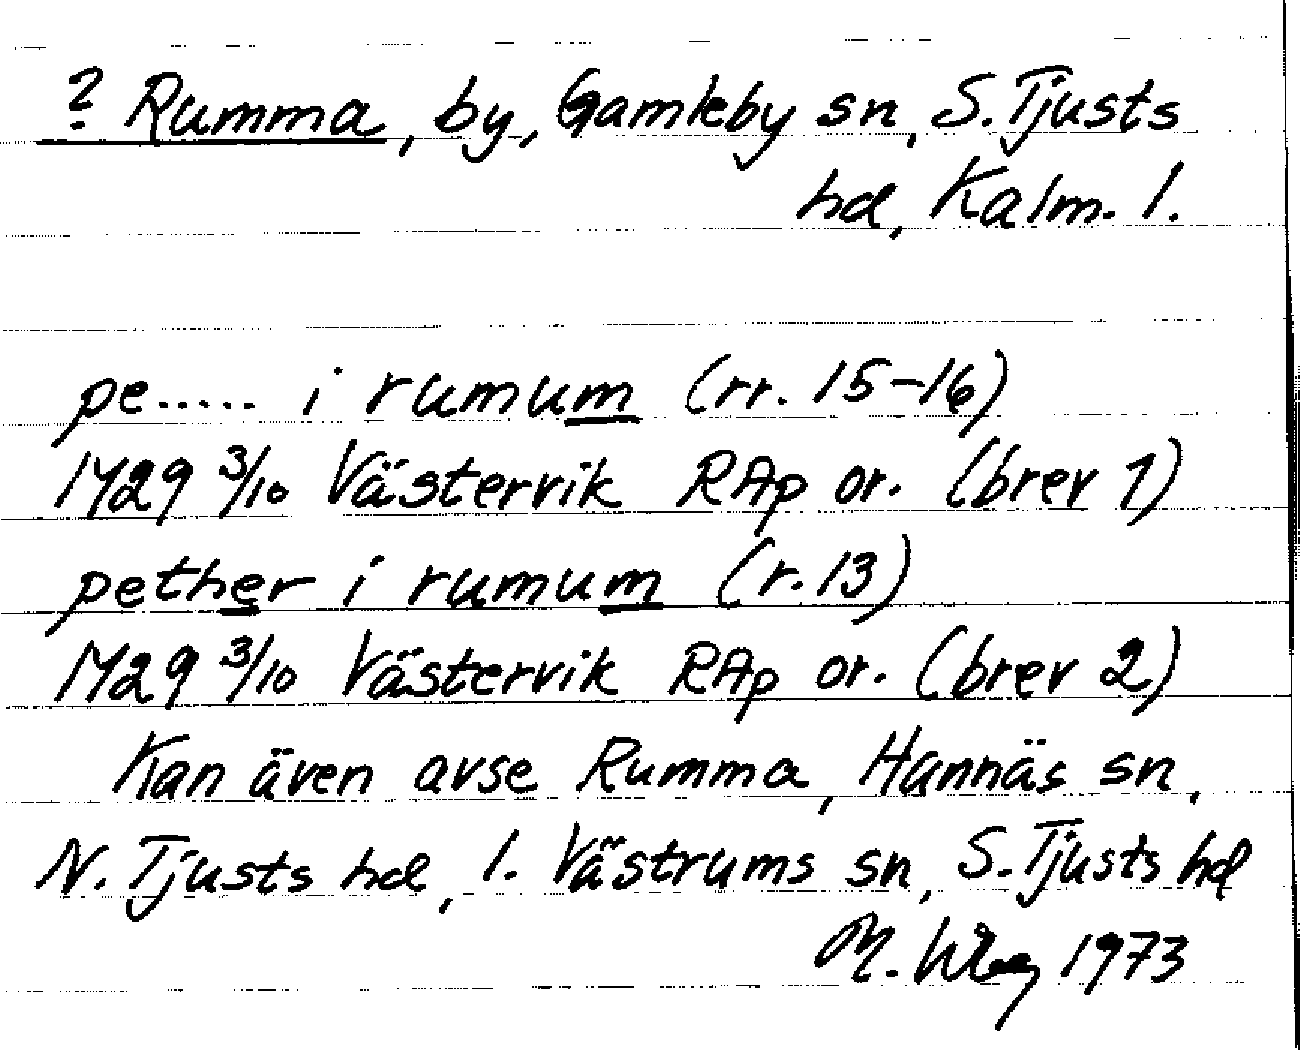 ? Rumma, by, Gamleby sn, S. Tjusts
hd, Kalm. l.
pe..... i rumum (rr. 15-16)
1429 3/10 Västervik RAp or. (brev 1)
pether i rumum (r. 13)
1429 3/10 Västervik RAp or. (brev 2)
Kan även avse Rumma, Hannäs sn,
N. Tjusts hd, l. Västrums sn, S. Tjusts hd
M. 1973